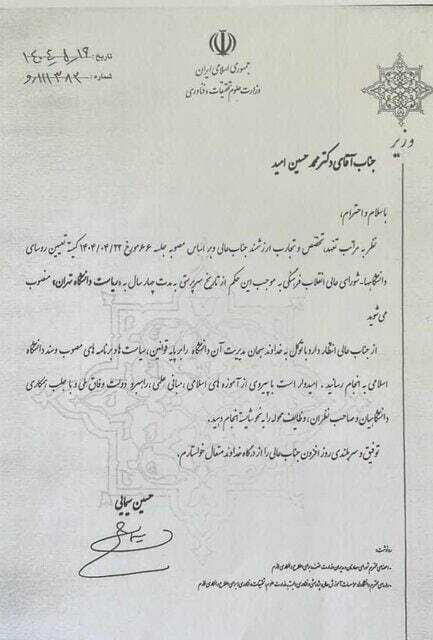 جمهوری اسلامی ایران
وزارت علوم تحقیقات و فناوری
تاریخ: ۱۴۰۴/۵/۱۹
شماره: و/۱۱۱۳۸۲
وزیر
جناب آقای دکتر محمد حسین امید
با سلام و احترام،
نظر به مراتب تعهد، تخصص و تجارب ارزشمند جنابعالی و بر اساس مصوبه جلسه ۶۶ مورخ ۱۴۰۴/۰۴/۲۲ کمیته تعیین روسای
دانشگاهها-شورای عالی انقلاب فرهنگی به موجب این حکم از تاریخ سرپرستی به مدت چهار سال به «ریاست دانشگاه تهران» منصوب
می‌شوید
از جناب عالی انتظار دارد با توکل به خداوند سبحان مدیریت آن دانشگاه را بر پایه قوانین، سیاست‌ها و برنامه های مصوب و سند دانشگاه
اسلامی به انجام رسانید. امیدوار است با پیروی از آموزه های اسلامی، مبانی علمی، راهبرد دولت وفاق ملی و با جلب همکاری
دانشگاهیان و صاحب نظران، وظایف محوله را به نحو شایسته انجام دهید.
توفیق و سربلندی روز افزون جناب عالی را از درگاه خداوند متعال خواستارم.
حسین سیمایی
رونوشت: